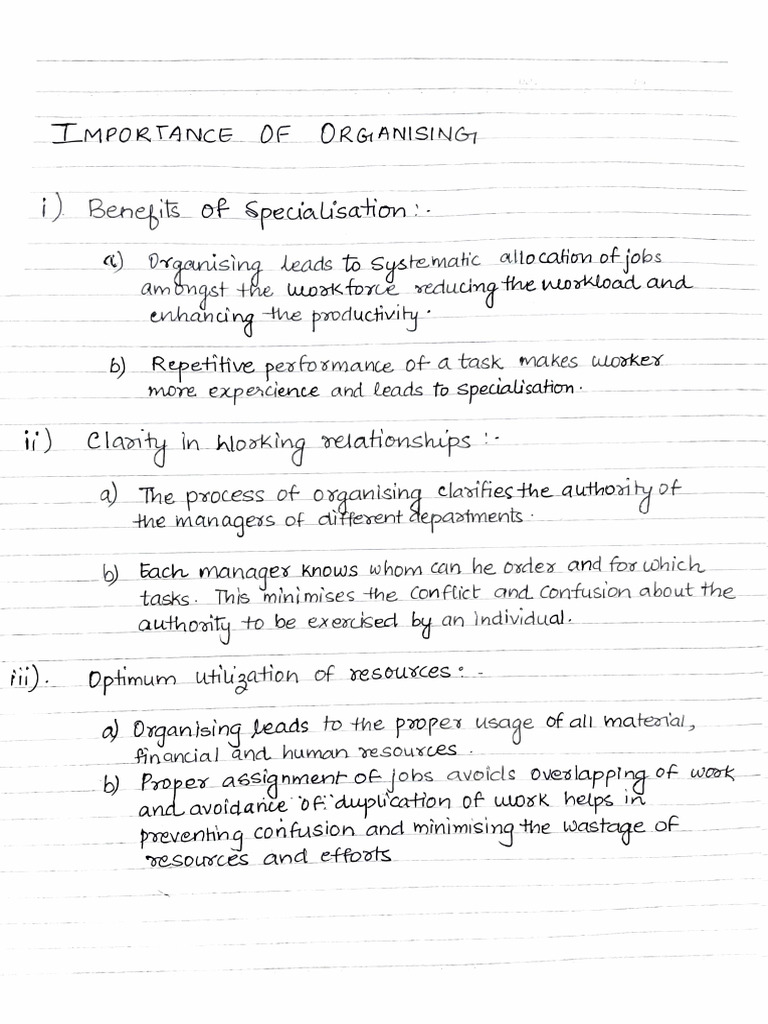 IMPORTANCE OF ORGANISING
i) Benefits of Specialisation :-
a) Organising leads to systematic allocation of jobs
amongst the workforce reducing the workload and
enhancing the productivity.
b) Repetitive performance of a task makes worker
more expercience and leads to specialisation.
ii) Clarity in Working relationships :-
a) The process of organising clarifies the authority of
the managers of different departments.
b) Each manager knows whom can he order and for which
tasks. This minimises the conflict and confusion about the
authority to be exercised by an individual.
iii). Optimum utilization of resources :-
a) Organising leads to the proper usage of all material,
financial and human resources.
b) Proper assignment of jobs avoids overlapping of work
and avoidance of duplication of work helps in
preventing confusion and minimising the wastage of
resources and efforts